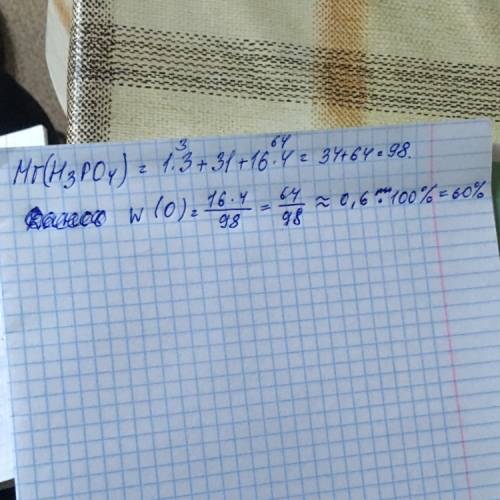 3 64
Mr(H₃PO₄) = 1·3 + 31 + 16·4 = 34+64=98.
W (O) = 16·4/98 = 64/98 ≈ 0,6 · 100% = 60%